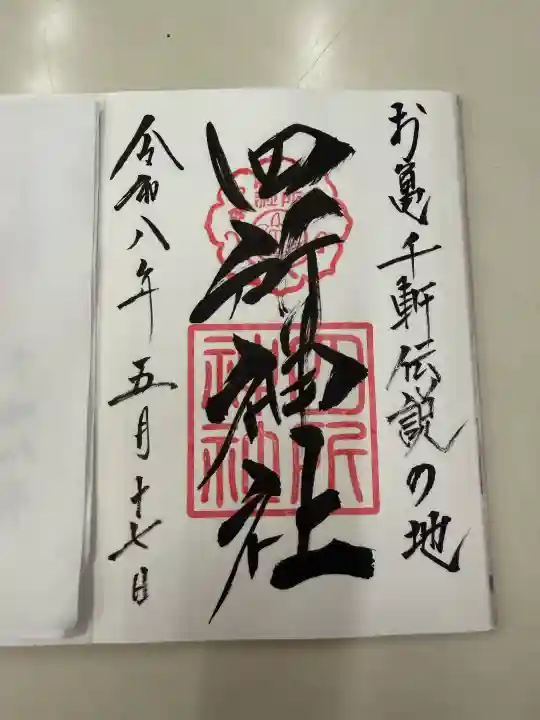 お亀千軒伝説の地
四所神社
四所
神社
令和八年五月十七日